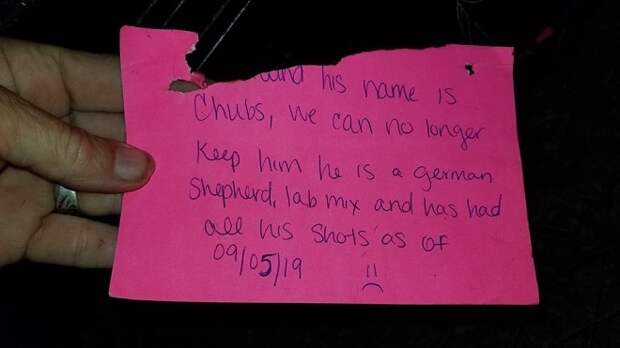 his name is
Chubs, we can no longer
Keep him he is a german
Shepherd, lab mix and has had
all his shots as of
09/05/19